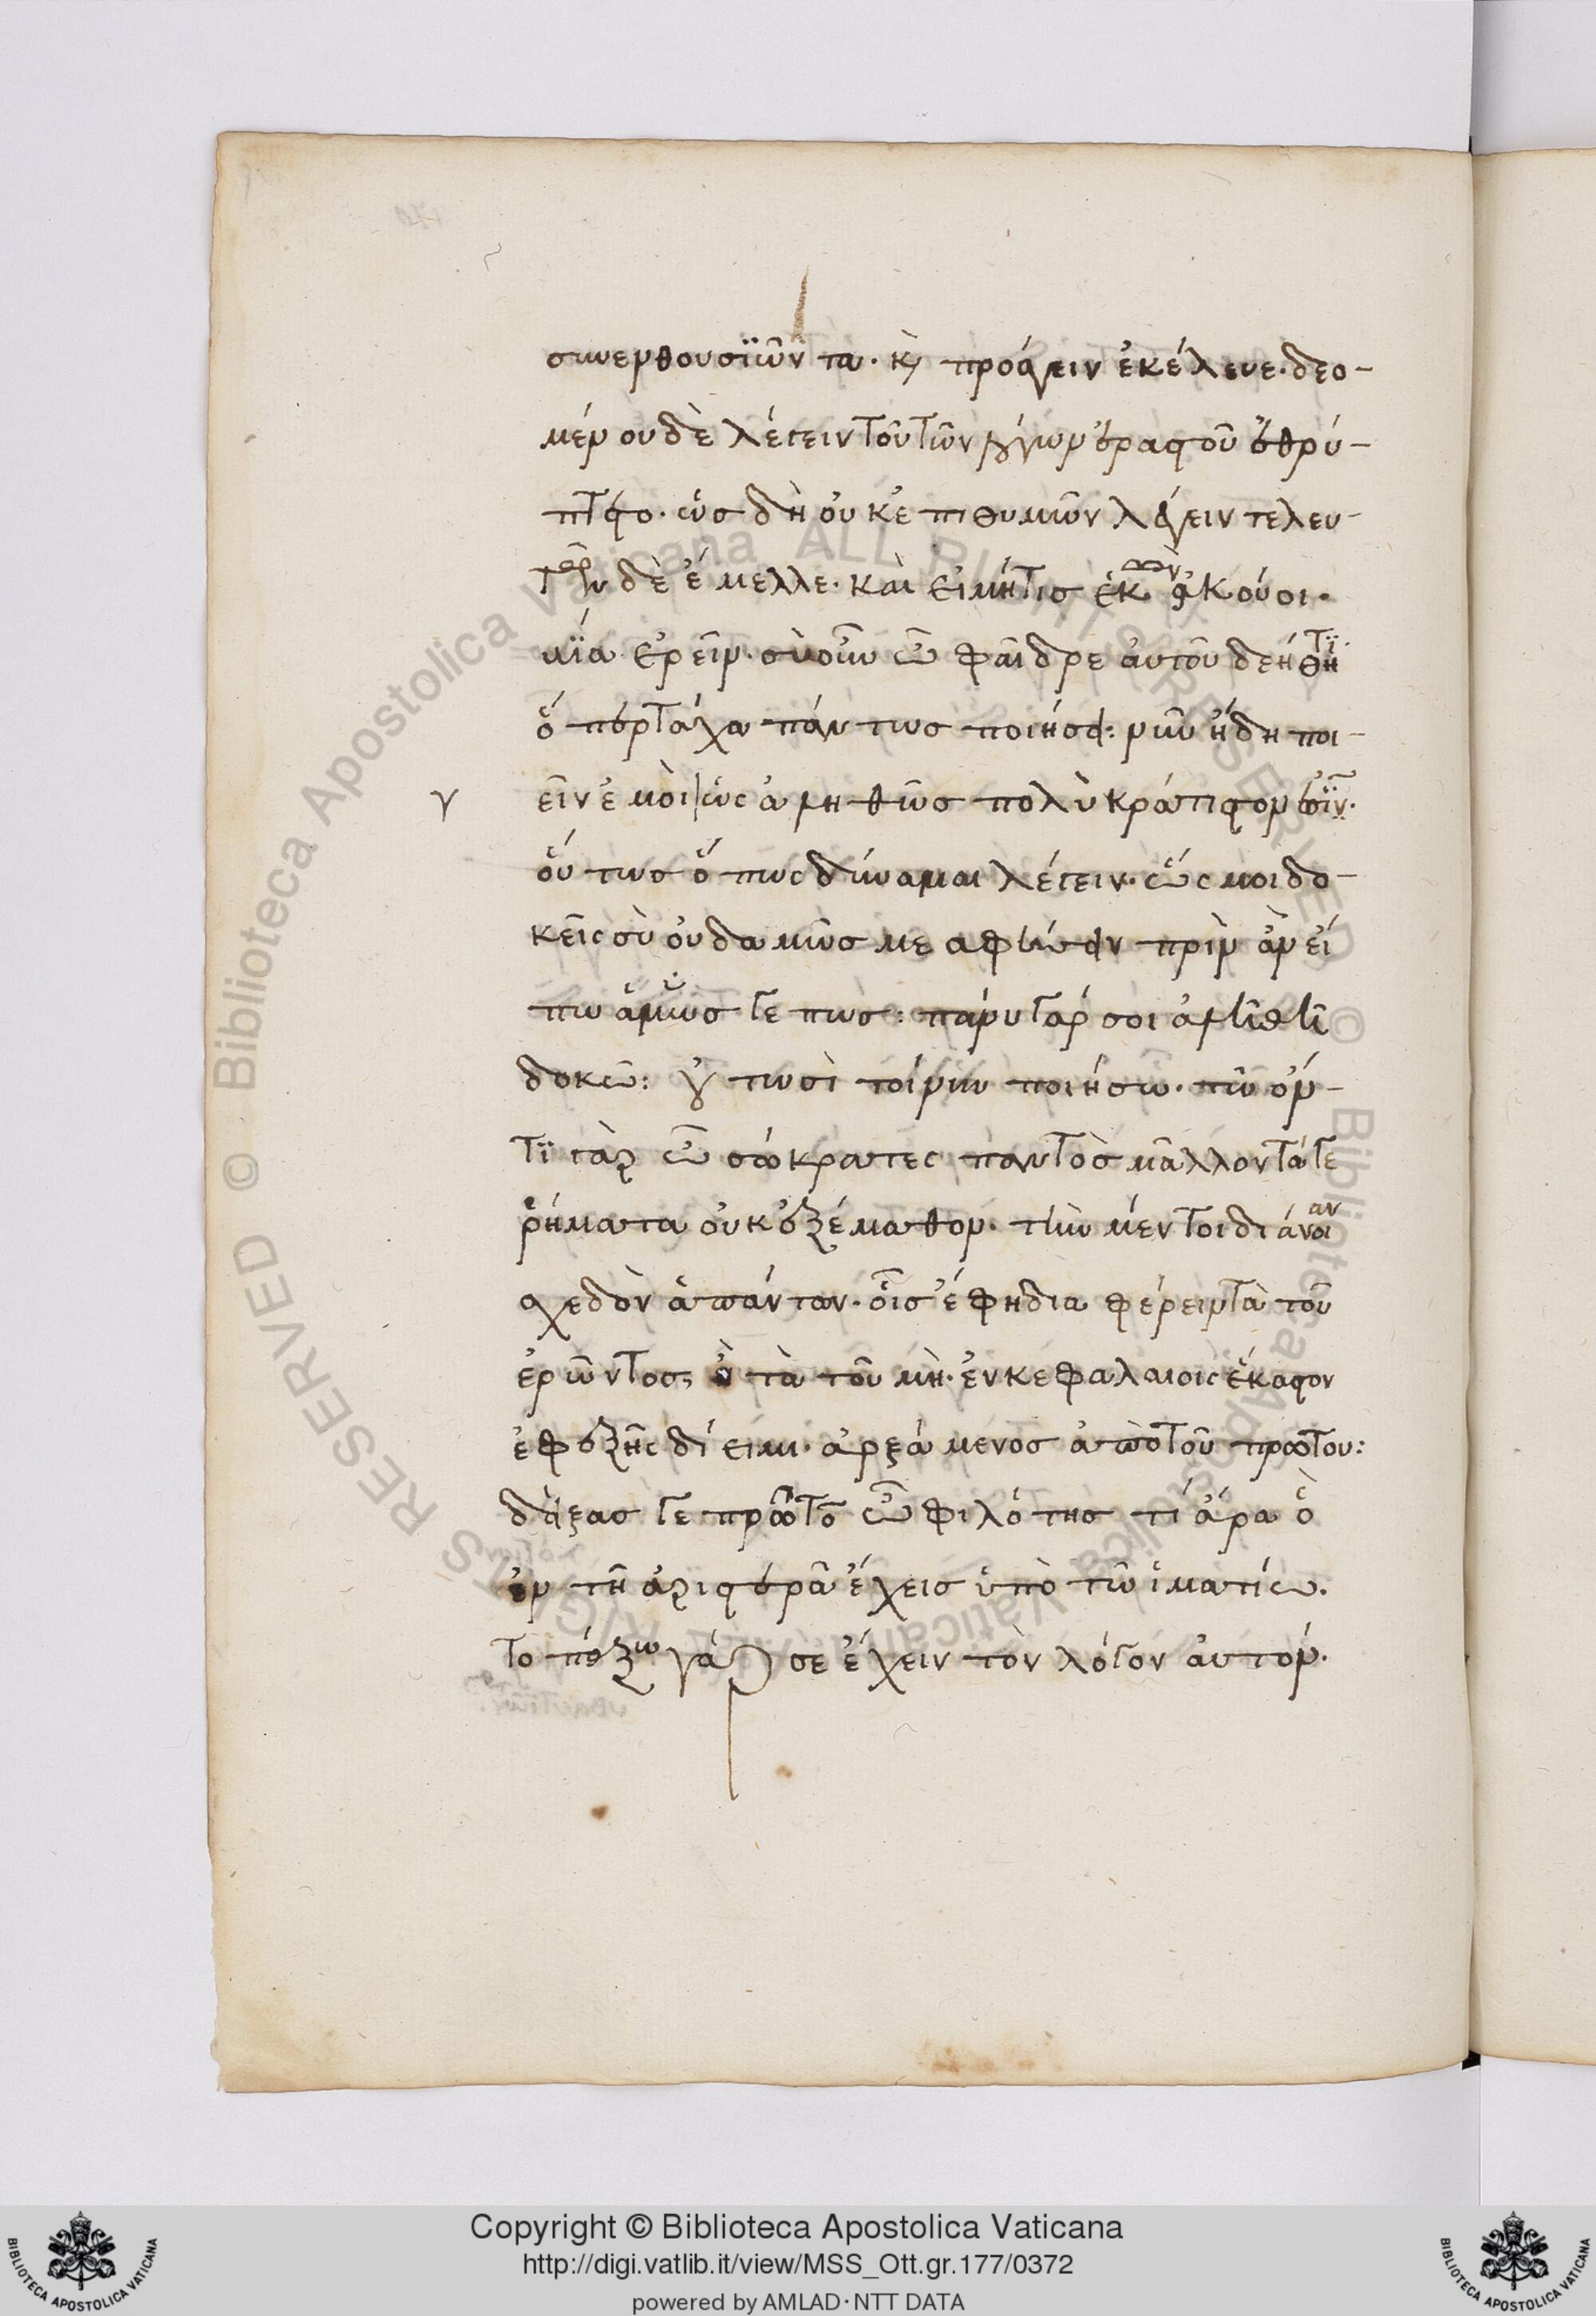 συνενθουσϊῶντα. κ προάγειν ἐκέλευε. δεο-
μένου δὲ λέγειν τοῦ τῶν λόγων ἐραστοῦ ἐθρύ-
πτετο. ὡσ δὴ οὐκ ἐπιθυμῶν λέγειν τελευ-
τῶν δὲ ἔμελλε. καὶ εἰ μή τισ ἑκὼν ἀκούοι.
βία ἐρεῖν. σὺ οὖν ὦ φαῖδρε ἀυτοῦ δεήθητϊ
ὅπερ τάχα πάντωσ ποιήσει: νῦν ἤδη ποι-
γ
εῖν ἐμοὶ ὡς ἀληθῶσ πολὺ κράτιστον ἐστϊν.
οὕτωσ ὅπως δύναμαι λέγειν. ὥς μοι δο-
κεῖς σὺ οὐδαμῶσ με αφήσειν πρὶν ἂν εἴ-
πω ἁμῶσ γε πωσ: πάνυ γάρ σοι ἀληθῆ
δοκῶ: οὑτωσὶ τοίνυν ποιήσω. τῶ ὄν-
τϊ γὰρ ὦ σώκρατες παντὸσ μᾶλλον τά γε
ῥήματα οὐκ ἐξέμαθον. τὴν μέντοι διάνοιαν
σχεδὸν ἁπάντων. οἷσ ἔφη διαφέρειν τὰ τοῦ
ἐρῶντος, ἢ τὰ τοῦ μὴ. ἐν κεφαλαιοις ἕκαστον
ἐφεξῆς δίειμι. ἀρξάμενοσ ἀπὸ τοῦ πρώτου:
δείξασ γε πρῶτον ὦ φιλότησ τί ἄρα ὃ
ἐν τῆ ἀριστερᾶ ἔχεισ ὑπὸ τῶ ἱματίω.
τοπάζω γάρ σε ἔχειν τὸν λόγον ἀυτόν.
Copyright © Biblioteca Apostolica Vaticana
http://digi.vatlib.it/view/MSS_Ott.gr.177/0372
powered by AMLAD·NTT DATA